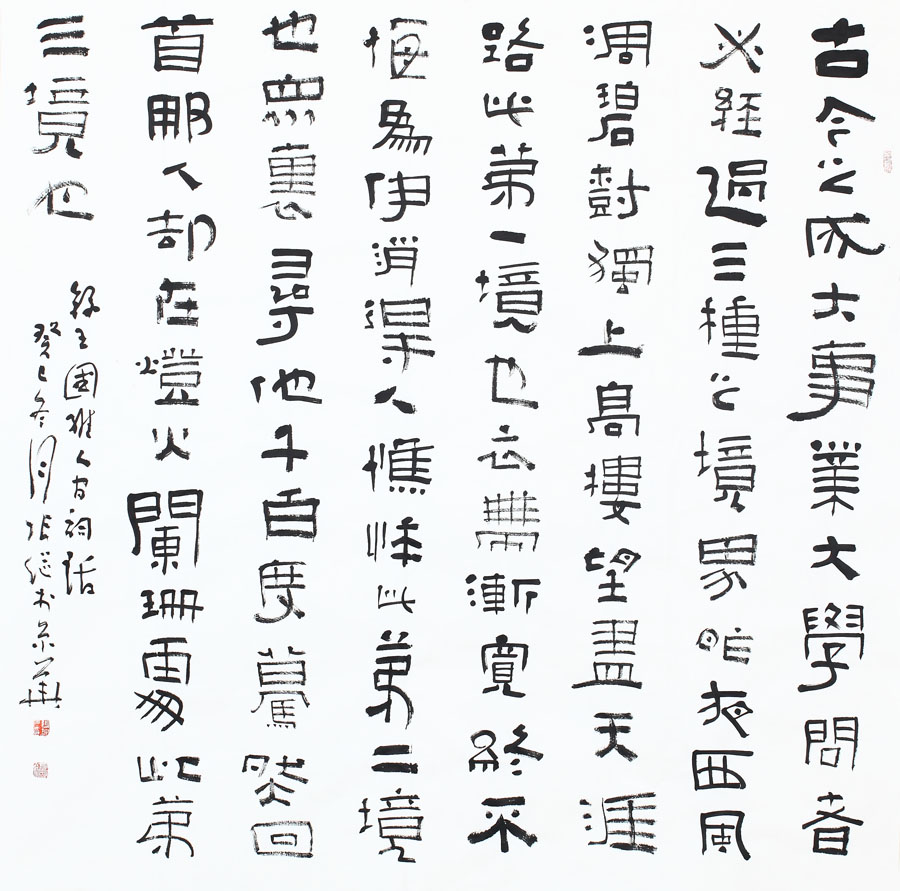 古今之成大事業大學問者
必經過三種之境界昨夜西風
凋碧樹獨上高樓望盡天涯
路此第一境也衣帶漸寬終不
悔為伊消得人憔悴此第二境
也眾裏尋他千百度驀然回
首那人却在燈火闌珊處此第
三境也
錄王國維人間詞話
癸巳冬月張繼於京華